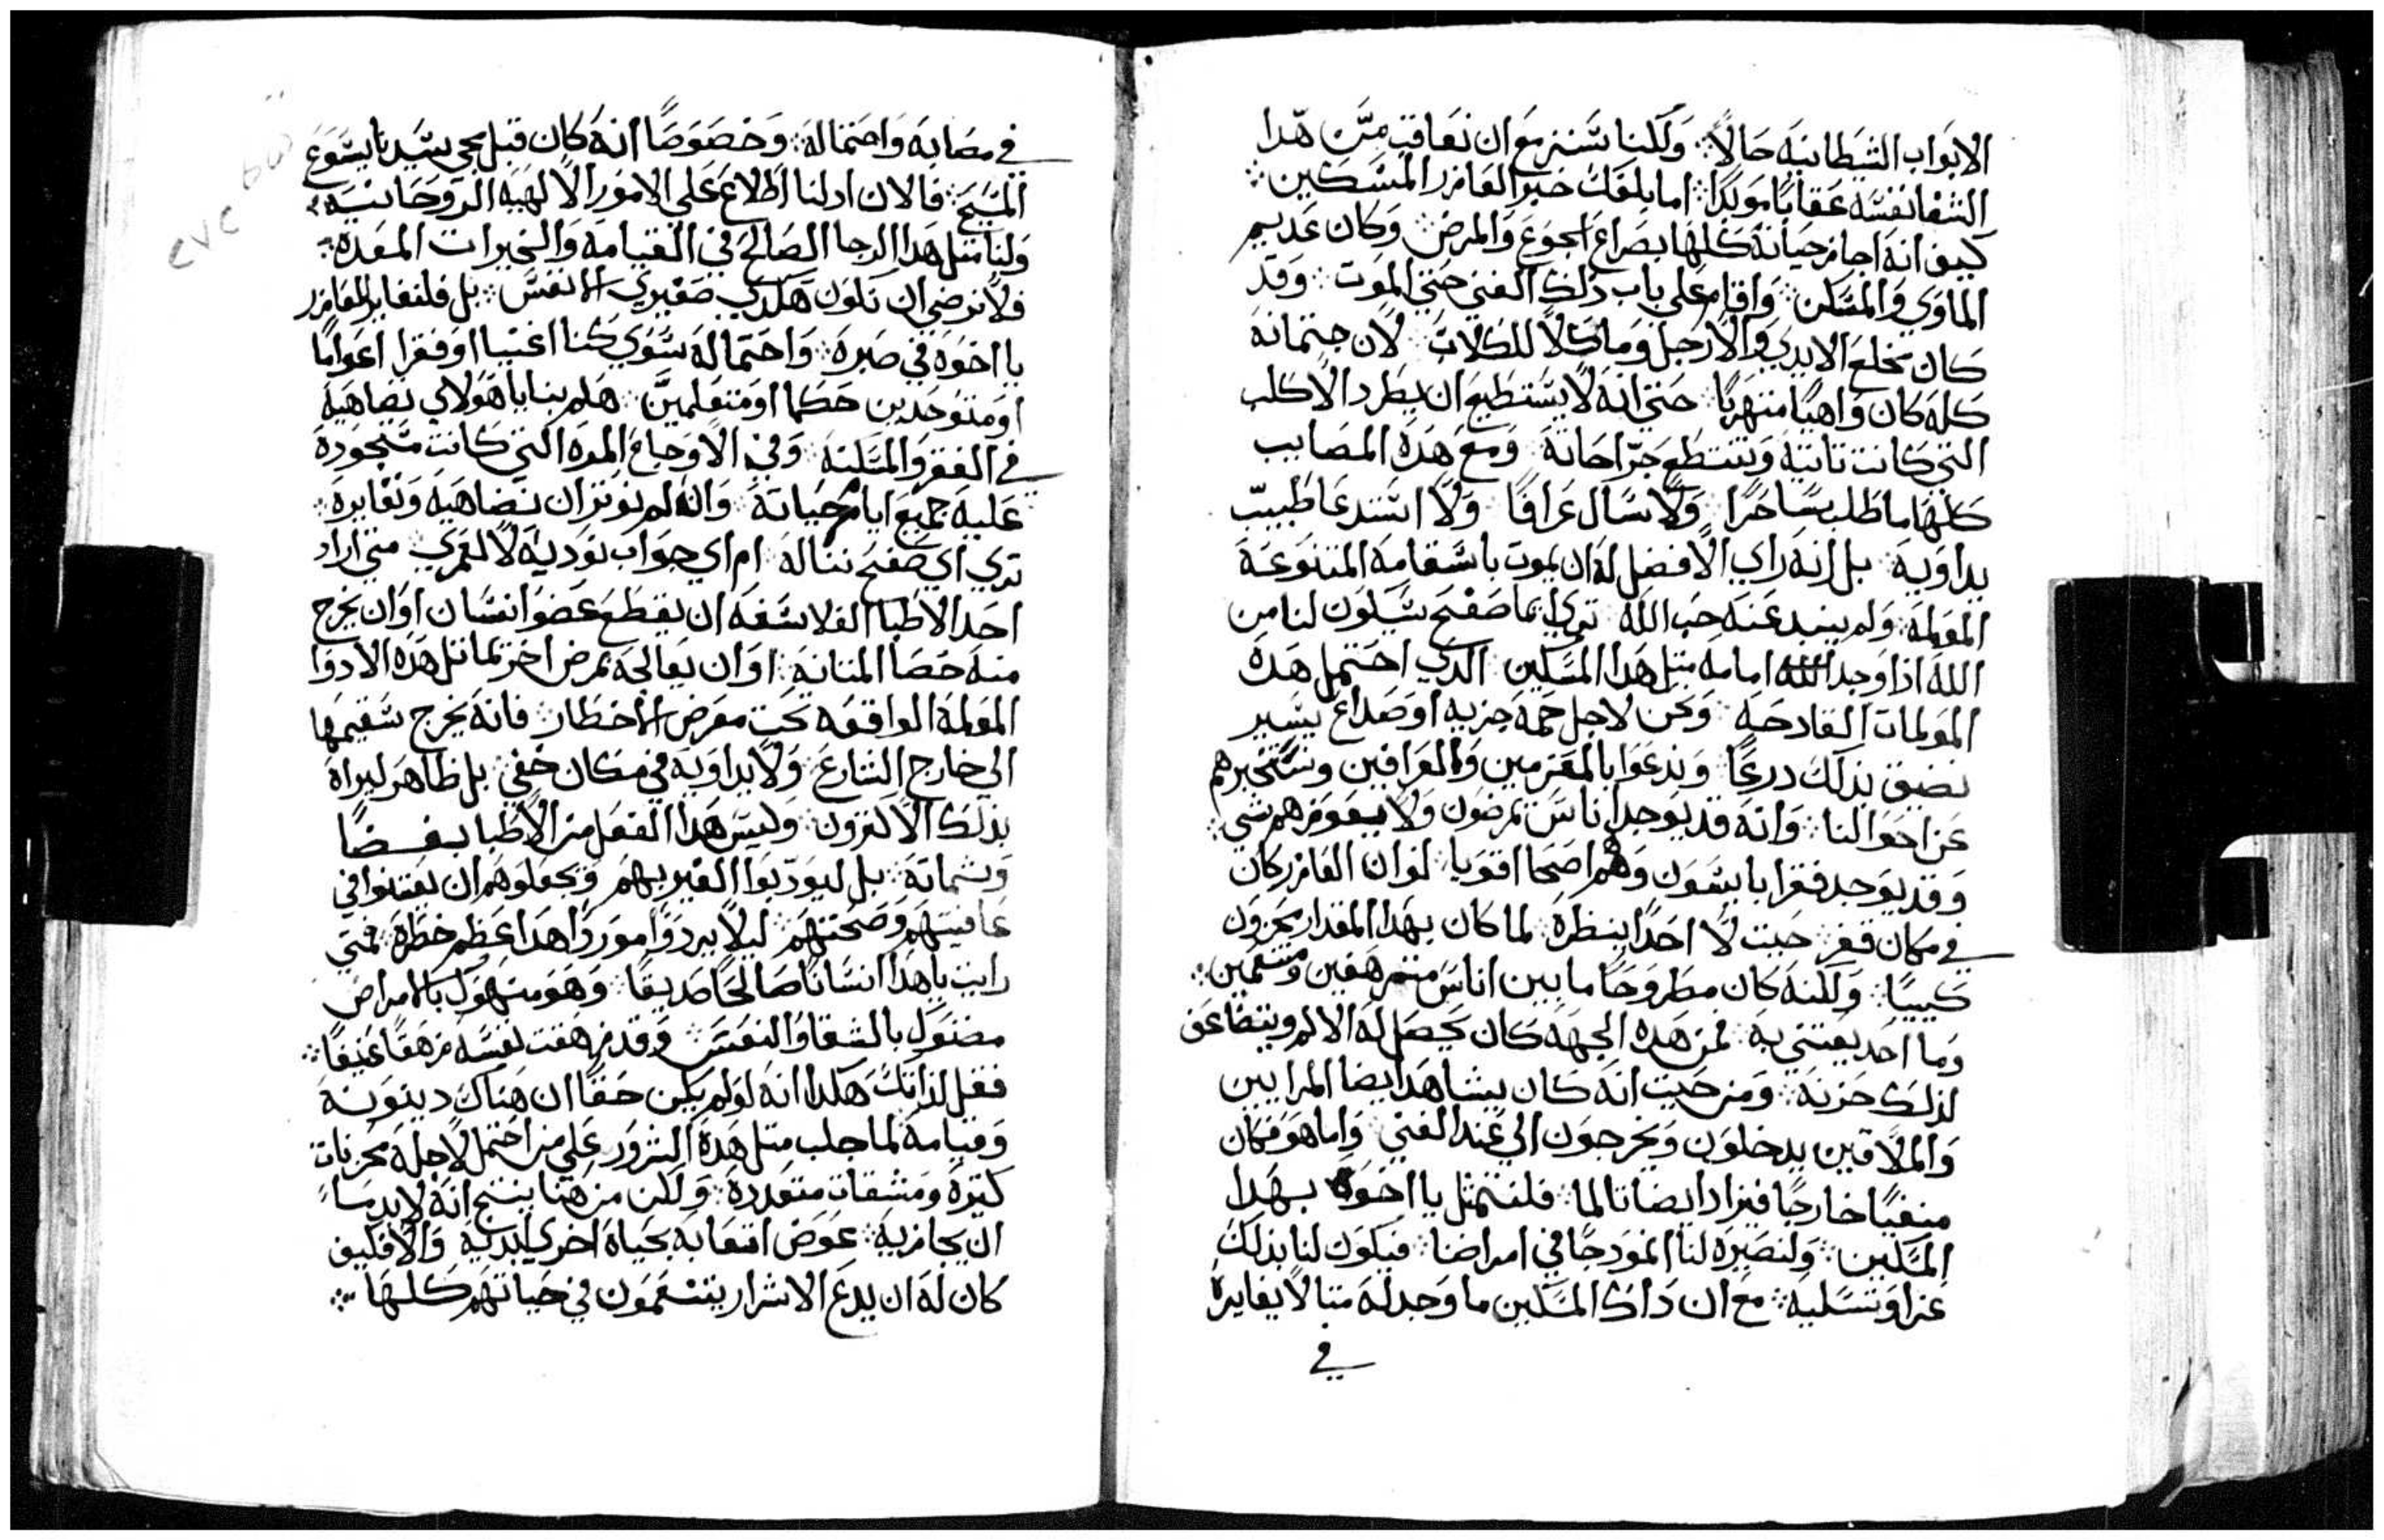 الابواب الشيطانيه حالاً ولكننا سننزمع ان نعاقب من هدا
الشفا نفسه عقاباً موبداً اما بلغك خبر العازر المسكين
كيف انه اجاز حياته كلها بصراع الجوع والمرض وكان عديم
الماوي والمسكن واقام علي باب ذلك الغني حتي الموت وقد
كان مخلع الايدي والارجل وماكلاً للكلاب لان جتمانه
كله كان واهياً منتهرياً حتي انه لا يستطيع ان يطرد الاكلب
التي كانت تاتيه وتنتطع جراحاته ومع هده المصايب
كلها ما طلب ساحراً ولا سال عرافاً ولا استدعا طبيب
يداويه بل انه راي الافضل له ان يموت باسقامه المتنوعه
المولمه ولم ينبد عنه حب الله تري ايما صفح سيكون لنا من
الله اذا وجد امامه متل هدا المسكين الدي احتمل هده
المولمات الفادحه ونحن لاجل حمه جزيه او صداع يسير
نضيق بذلك درعاً وندعوا بالمعزمين والعرافين ونستخبرهم
عن احوالنا وانه قد يوجد اناس يمرضون ولا يعوزهم شي
وقد يوجد فقرا بايسون وهم اصحا اقويا لو ان العازر كان
في مكان قفر حيت لا احداً ينظره لما كان بهدا المقدار محزون
كييباً ولكنه كان مطروحاً ما بين اناس مترهفين ومتنعمين
وما احد يعتني به فمن هده الجهه كان يحصل له الالم ويتضاعف
لذلك حزنه ومن حيت انه كان يشاهد ايضا المرايين
والملاقين يدخلون ويخرجون الي عند الغني واما هو فكان
منفياً خارجاً فيزاد ايضا تالما فلنتمثل يا اخوه بهدا
المسكين ولنصيره لنا انمودجاً في امراضنا فيكون لنا بذلك
عزا وتسليه مع ان داك المسكين ما وجد له متالاً يغايره
في
في مصابه واحتماله وخصوصاً انه كان قبل مجي سيدنا يسوع
المسيح فالان اد لنا اطلاع علي الامور الالهيه الروحانيه
ولنا متل هدا الرجا الصالح في القيامه والخيرات المعده
فلا نرضي ان نكون هكدي صغيري الانفس بل فلنغاير العازر
يا اخوه في صبره واحتماله سوي كنا اغنيا او فقرا اعواماً
او متوحدين حكما او متعلمين هلم بنا يا هولاي نضاهيه
في الفقر والمسكنه وفي الاوجاع المره التي كانت مستحوده
عليه جميع ايام حياته وان لم نوتر ان نضاهيه ونغايره
تري اي صفح نناله ام اي جواب نوديه لا لعمري متي اراد
احد الاطبا الفلاسفه ان يقطع عضو انسان او ان يخرج
منه حصا المتانه او ان يعالجه بمرض اخر بماتل هده الادوا
المولمه الواقعه تحت معرض الاخطار فانه يخرج سقيمها
الي خارج الشارع ولا يداويه في مكان خفي بل ظاهر ليراه
بذلك الاكترون وليس هدا الفعل من الاطبا بغضاً
وشماته بل ليودبوا الغير بهم ويجعلوهم ان يعتنوا في
عافيتهم وصحتهم ليلا يردوا موردا هدا عظم خطره فمتي
رايت يا هدا انساناً صالحاً صديقاً وهو منهوك بالامراض
مضنوك بالشقا والتعس وقد زهقت نفسه زهقاً عنيفاً
فقل لذاتك هكدا انه لو لم يكن حقاً ان هناك دينونه
وقيامه لما جلب متل هده الشرور علي من احتمل لاجله محزنات
كتيره ومشقات متعدده ولكن من هنا ينتج انه لابد ما
ان يجازيه عوض اتعابه بحياة اخري ابديه والا فكيف
كان له ان يدع الاشرار يتنعمون في حياتهم كلها